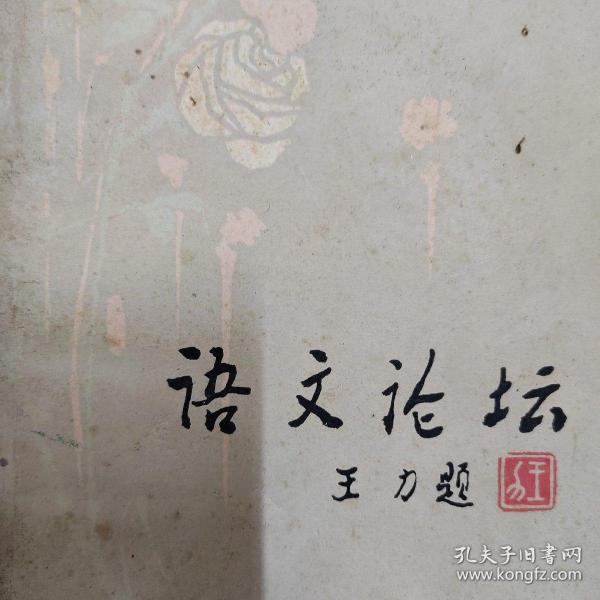 语文论坛
王力题
孔夫子旧书网
www.kongfz.com